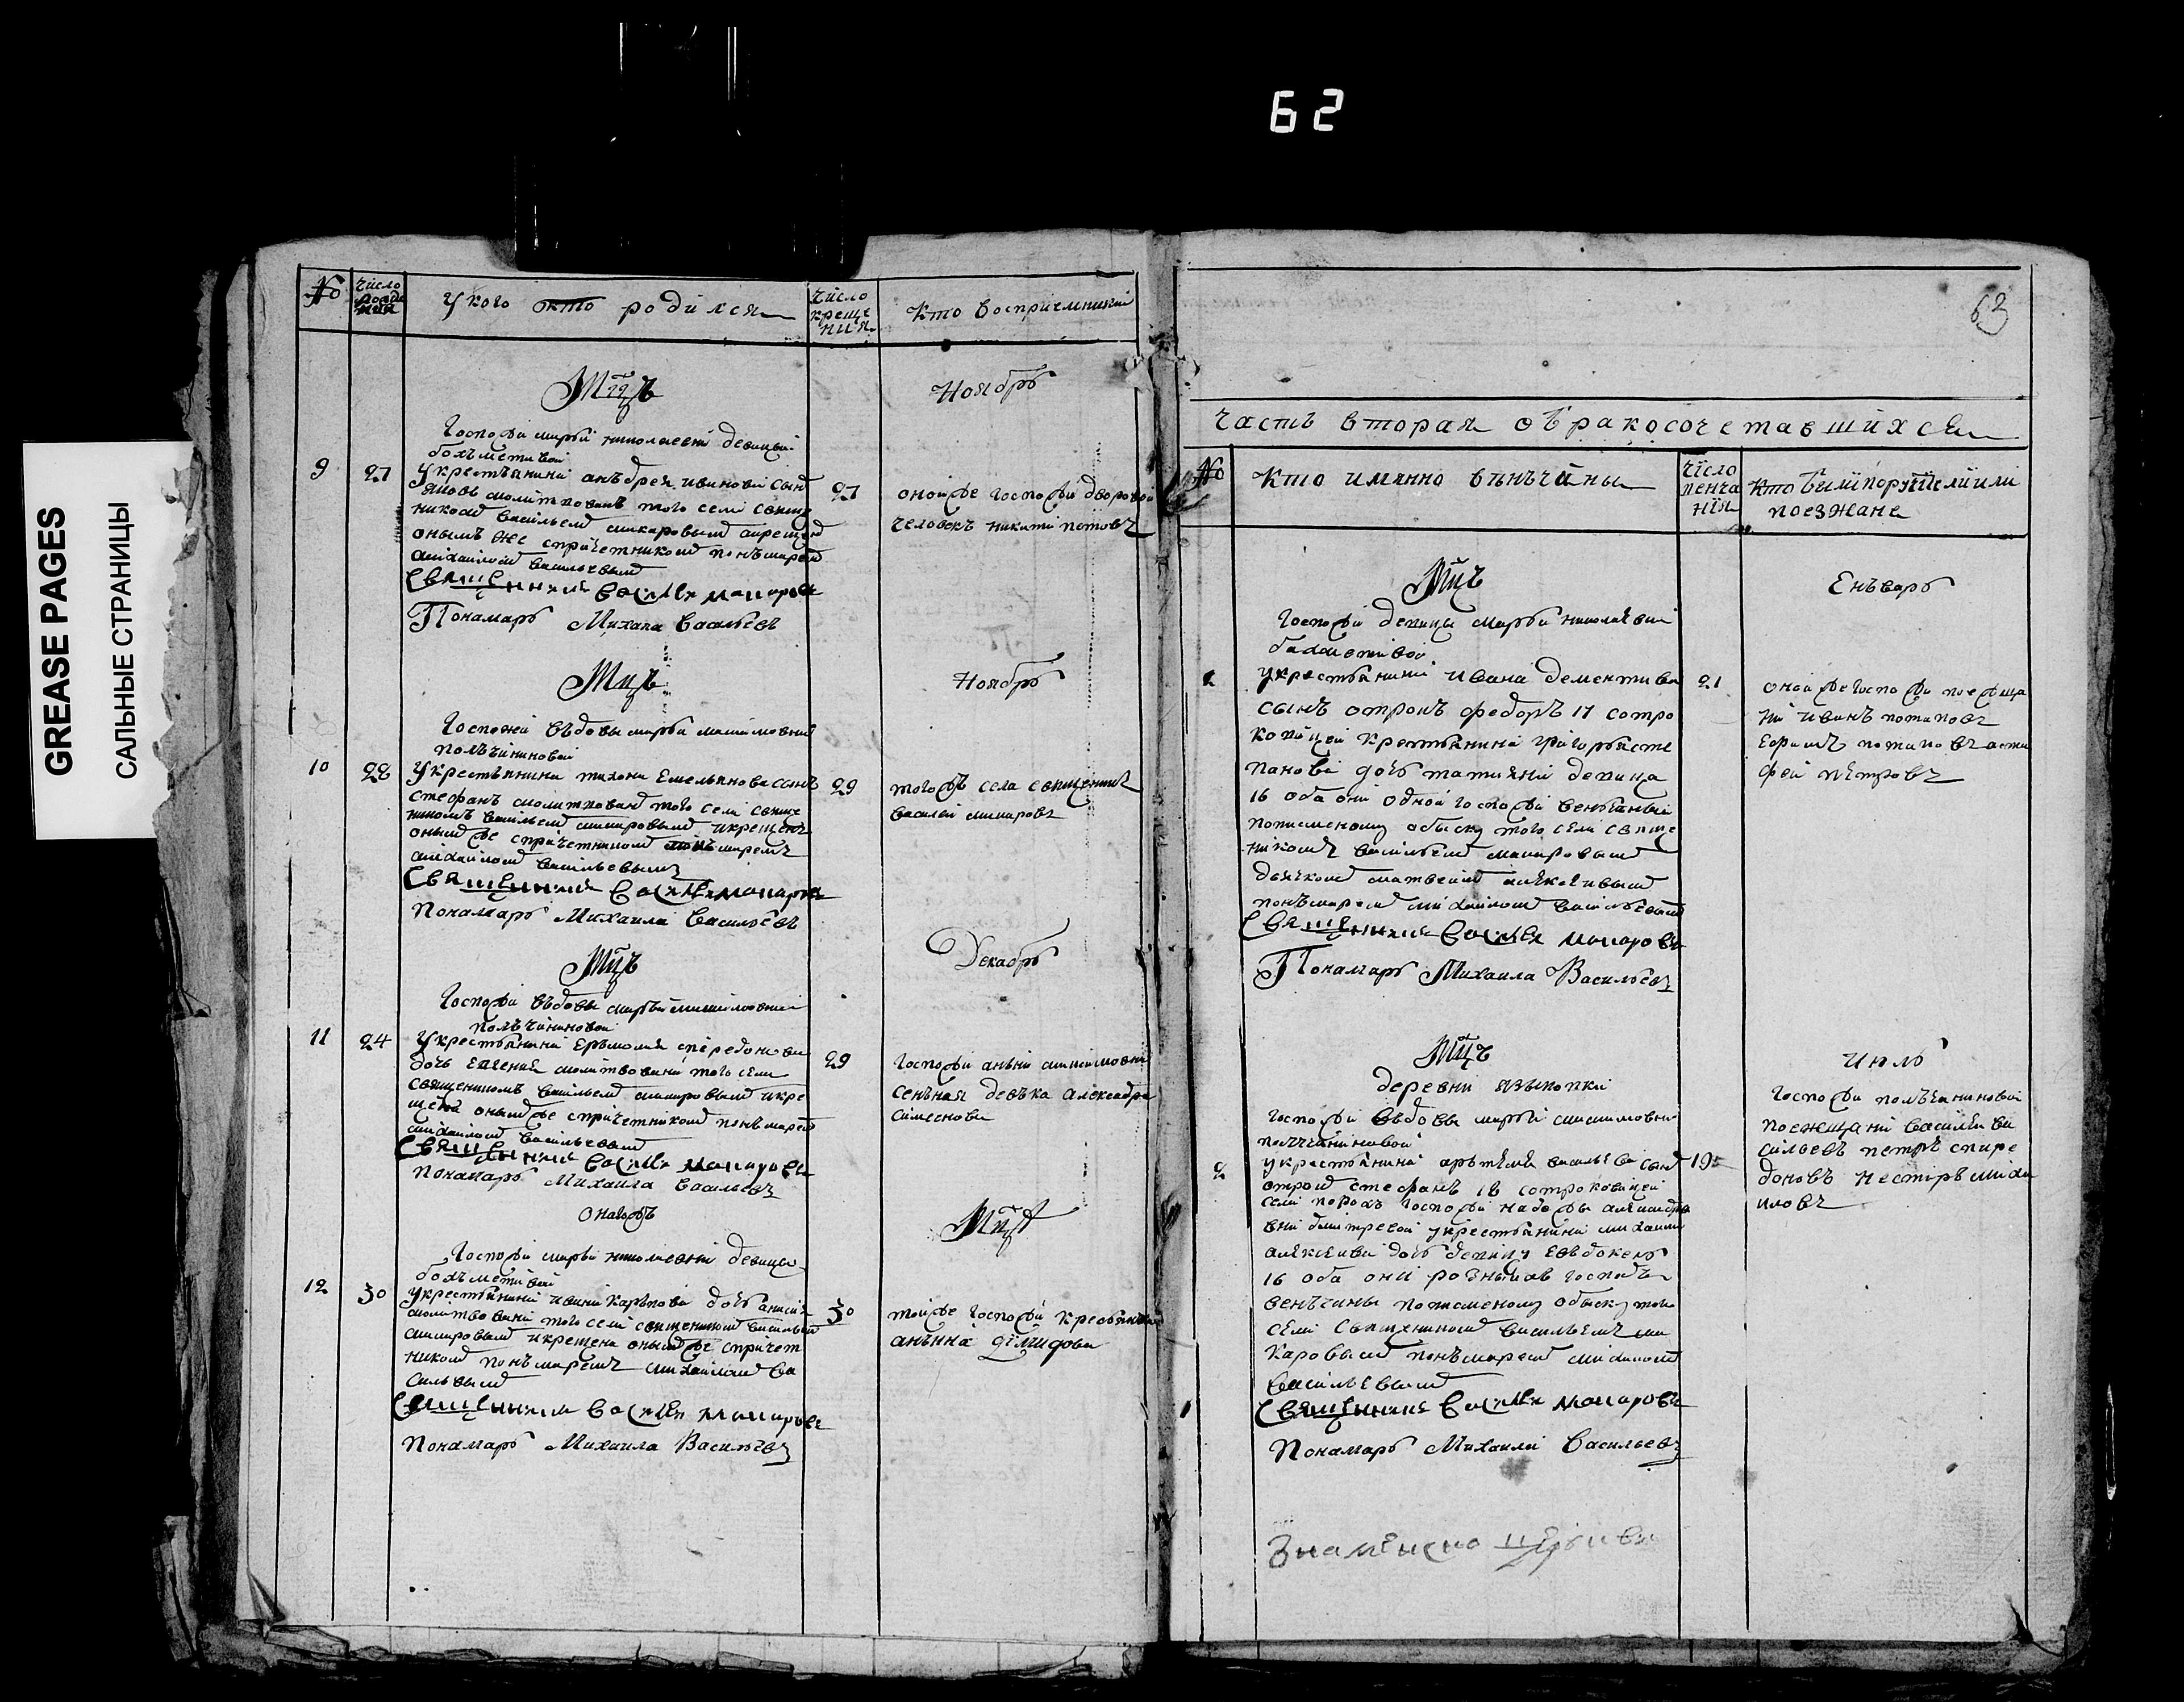 62
GREASE PAGES
САЛЬНЫЕ СТРАНИЦЫ
№
число рожде ния
У кого кто родился
число креще ния
кто восприемники
Мцъ
Ноябръ
Госпожи марьи николаевни девицы
бахъметивой
9
27
укрестьянина анъдрея иванова сынъ
яковъ молитвованъ того села свяще
никомъ васильемъ макаровымъ крещенъ
онымъ же спричетникомъ понъмарем
михаилом васильевым
Священникъ Василей макаровъ
Понамарь Михаила Васильевъ
27
оной же госпожи дворовой
человекъ никита
Мцъ
Ноябръ
Госпожи въдовы марьи максимовны
полъчаниновой
10
28
Укрестьянина тихона Емельянова сынъ
стефанъ молитвованъ того села свяще
никомъ васильемъ макаровымъ икрещенъ
оным же спричетником понъмаремъ
михаилом васильевымъ
Священникъ Василей макаровъ
Понамарь Михаила Васильевъ
29
того жъ села священникъ
василей макаровъ
Мцъ
Декабръ
Госпожи въдовы марьи максимовны
полъчаниновой
11
24
Укрестьянина ерьмолая спиредонова
дочь евгения молитвована того села
священникомъ васильем макаровым икре
щена оным же спричетником понъмарем
михаилом васильевым
Священникъ Василей макаровъ
понамарь Михаила Васильевъ
29
госпожи анны максимовны
сенъная девъка александра
симеонова
Онагожъ
МцА
Госпожи марьи николаевни девицы
бахъметивой
12
30
укрестьянина ивана карпова дочь анисия
молитвована того села священником васильем
макаровым икрещена оным же спричет
ником понъмаремъ михаилом ва
сильвым
Священникъ Василей макаровъ
Понамарь Михаила Васильевъ
30
той же госпожи кресьянка
анъна дѣмидова
63
часть вторая обракосочетавшихся
№
Кто имянно вѣнъчаны
число венча ния
Кто были поручители или
поезжане
Мцъ
Енъварь
Госпожи девицы марьи николаевой
бахметивой
1
укрестьянина ивана дементива
сынъ отрокъ федоръ 17 сотро
ковицей крестьянина григорья сте
панова дочь татияна девица
16 оба они одной госпожи венчаны
пописменому обыску того села свяще
никомъ васильем макаровым
дьячком матвеим алексеивым
понъмарем михаилом васильевым
Священникъ Василей макаровъ
Понамарь Михаила Васильевъ
21
оной же госпожи поезща
ни иванъ потаповъ
Ефимъ потаповъ
фей пѣтровъ
Мцъ
Июль
деревни языковки
госпожи въдовы марьи максимовны
полчаниновой
2
укрестьянина артемя васильева сынъ
отрок стефанъ 18 сотроковицей
села госпожи надежды
вны дмитревой укрестьянина михаила
алексеива дочь девицу евдокею
16 оба они розныхъ господъ
венъчаны пописменому обыску того
села священником васильемъ ма
каровым понъмарем михаилом
васильевым
Священникъ Василей макаровъ
Понамарь Михаила Васильевъ
19
госпожи полъчаниновой
поезжщани василей ва
сильевъ петръ спире
доновъ нестеръ миха
иловъ
Знаменско церкви